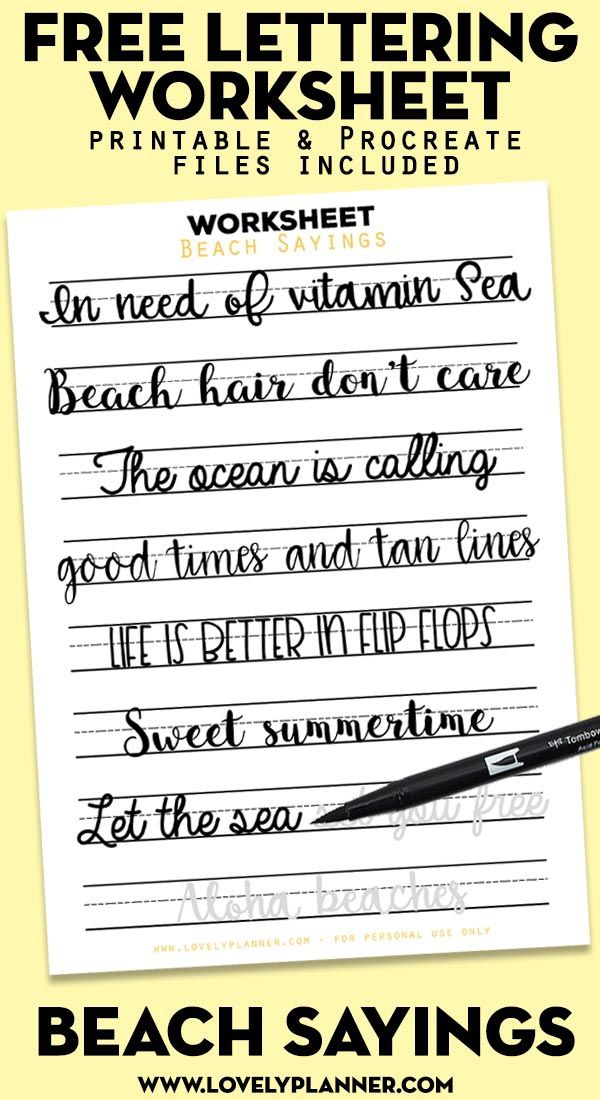 FREE LETTERING
WORKSHEET
PRINTABLE & PROCREATE
FILES INCLUDED
WORKSHEET
BEACH SAYINGS
In need of vitamin Sea
Beach hair don't care
The ocean is calling
good times and tan lines
LIFE IS BETTER IN FLIP FLOPS
Sweet summertime
Tombow
Let the sea set you free
Aloha beaches
WWW.LOVELYPLANNER.COM - FOR PERSONAL USE ONLY
BEACH SAYINGS
WWW.LOVELYPLANNER.COM